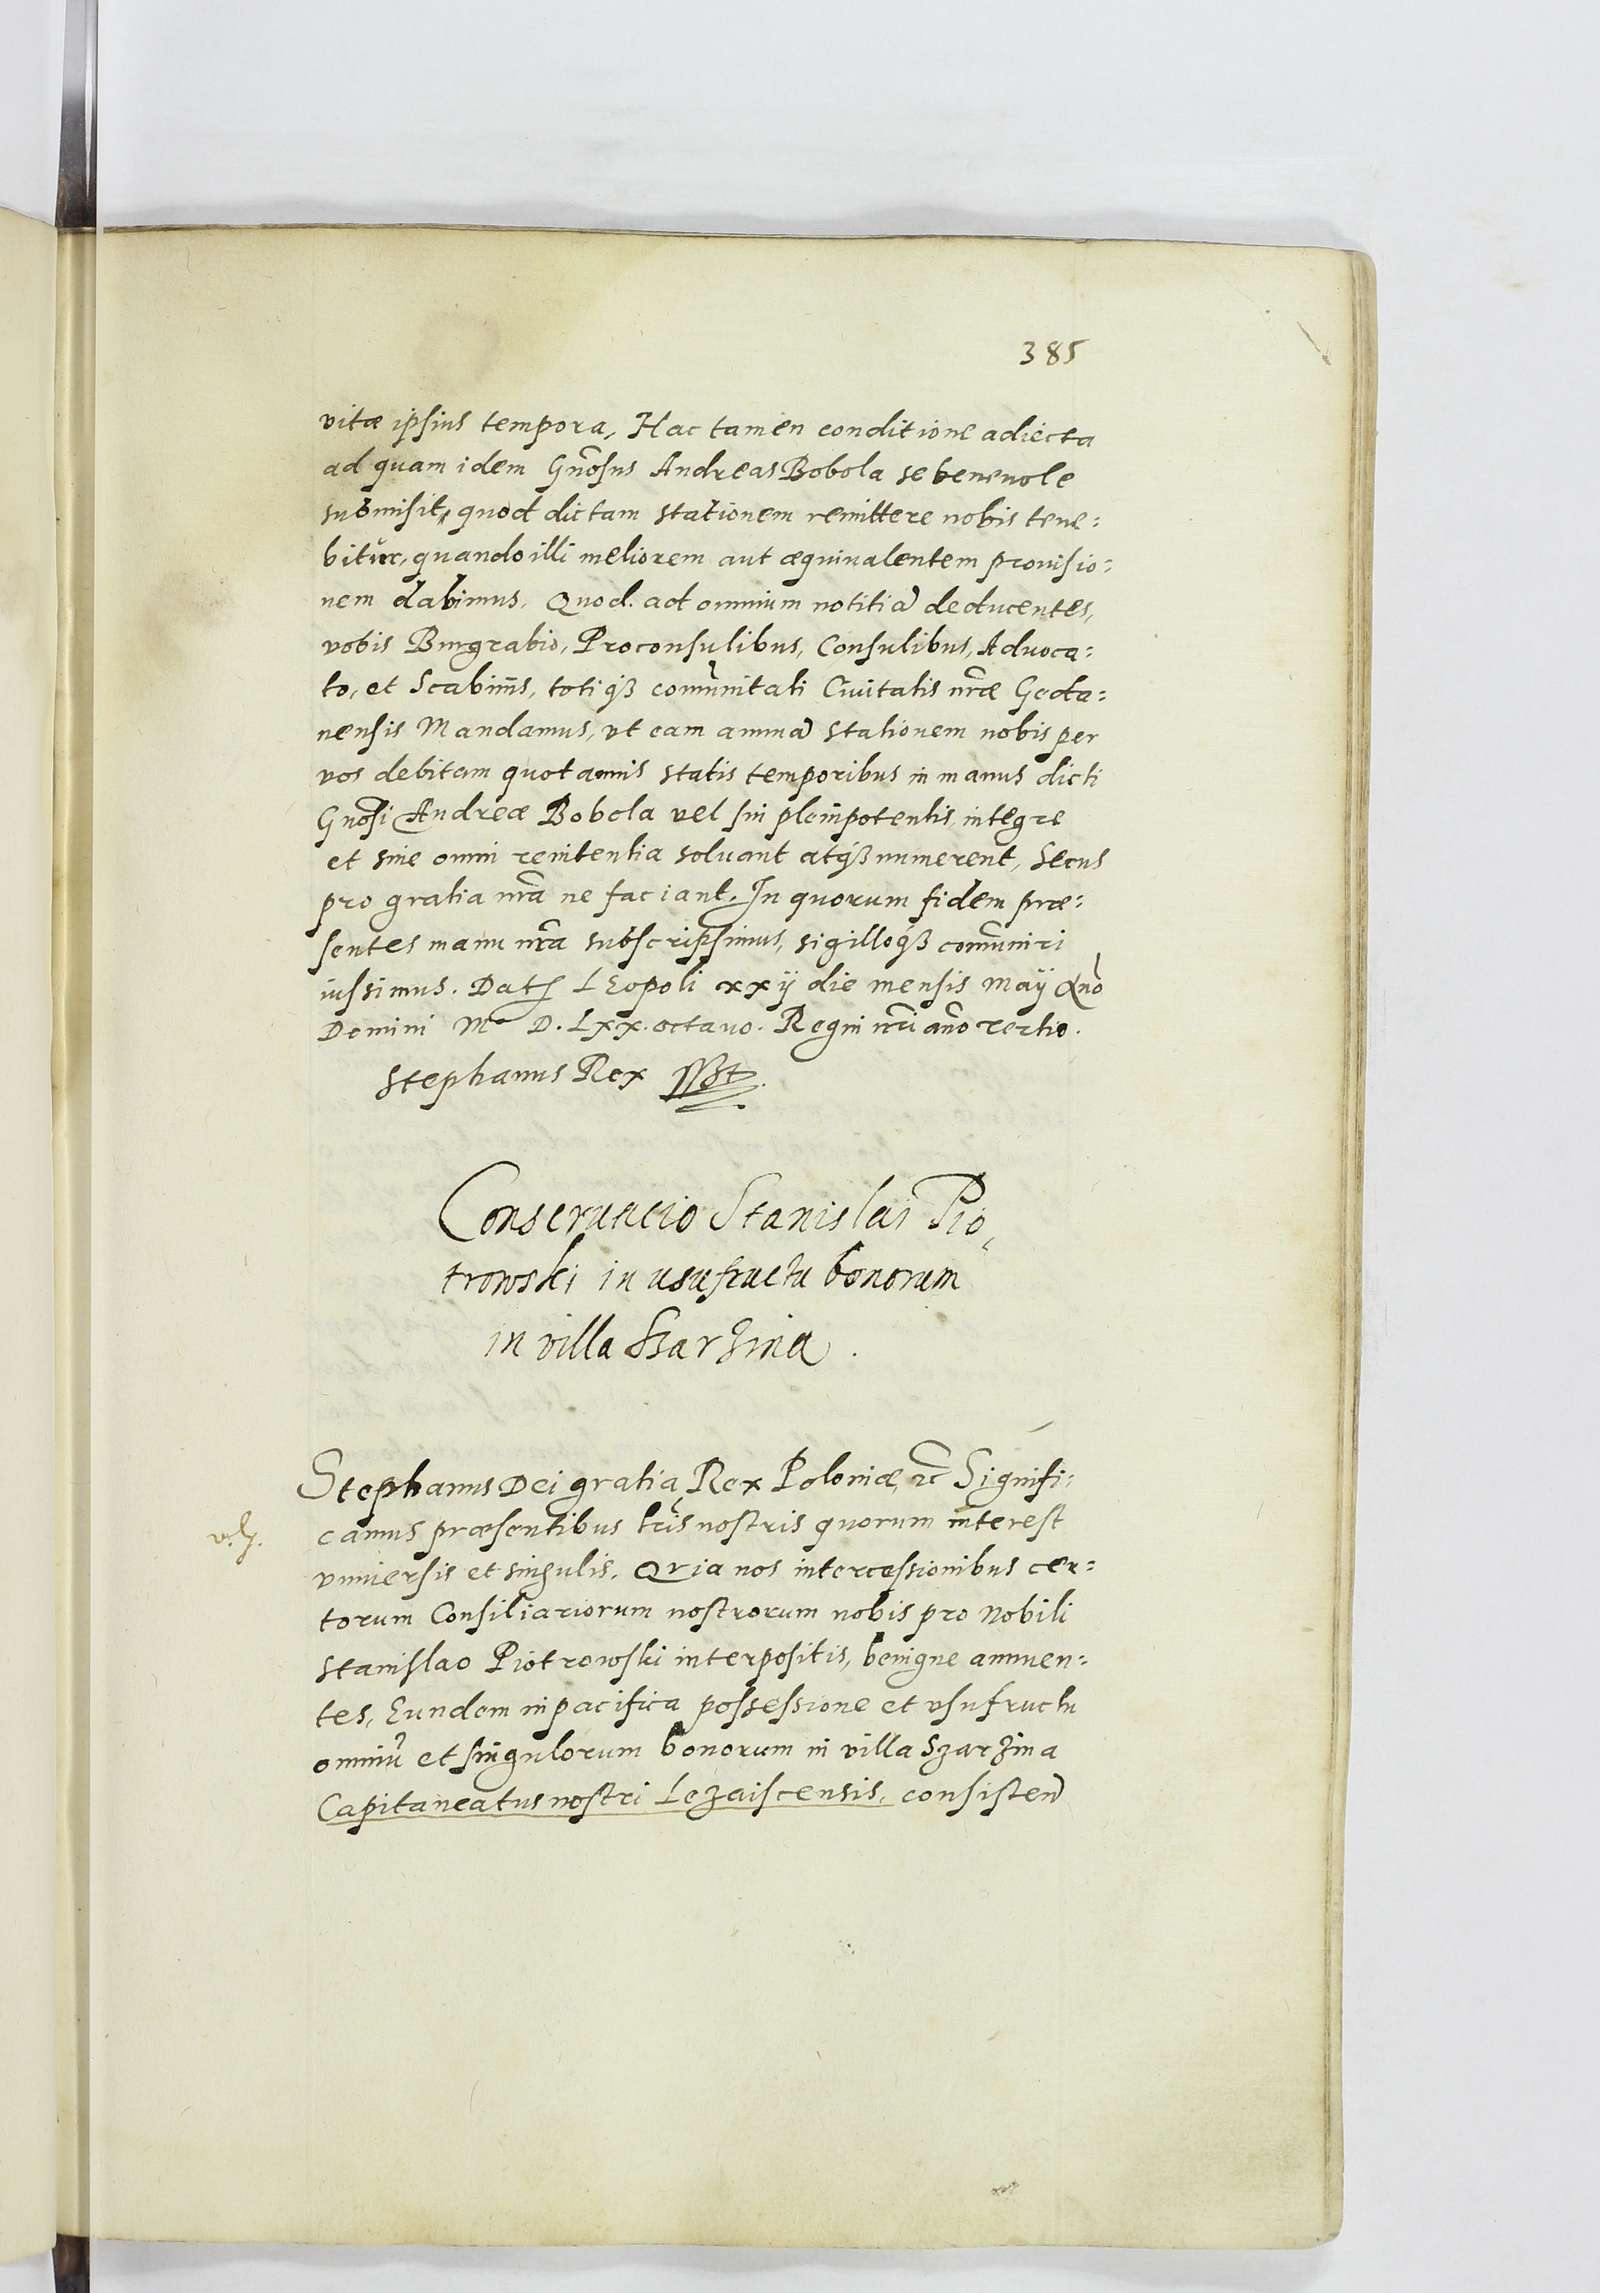 385
vitæ ipsius tempora, Hac tamen conditione adiecta
ad quam idem Gnosus Andreas Bobola se beneuole
submisit, quod dictam stationem remittere nobis tene:
bitur, quando illi meliorem aut æquiualentem prouisio:
nem dabimus. Quod ad omnium notitiã deducentes,
vobis Burgrabio, Proconsulibus, Consulibus, Aduoca:
to, et Scabinis, totiqȝ comunitati Ciuitatis nræ Geda:
nensis Mandamus, vt eam annuã stationem nobis per
vos debitam quotannis statis temporibus in manus dicti
Gnosi Andreæ Bobola vel sui plenipotentis integre
et sine omni renitentia soluant atqȝ numerent, Secus
pro gratia nra ne faciant. In quorum fidem præ:
sentes manu nra subscripsimus, sigilloqȝ comuniri
iussimus. Dat Leopoli xxij die mensis Maÿ Año
Domini Mº D. Lxx. octauo. Regni nri año tertio.
Stephanus Rex sst.
Conseruacio Stanislai Pio,
trowski in usufructu bonorum
in villa Szarzina.
Stephanus Dei gratia Rex Poloniæ, ꝛc Signifi:
camus præsentibus lris nostris quorum interest
vniuersis et singulis. Quia nos intercessionibus cer:
torum Consiliariorum nostrorum nobis pro Nobili
Stanislao Piotrowski interpositis, benigne annuen:
tes, Eundem in pacifica possessione et vsufructu
omniũ et singulorum bonorum in villa Szarzina
Capitaneatus nostri Lezaiscensis, consisten